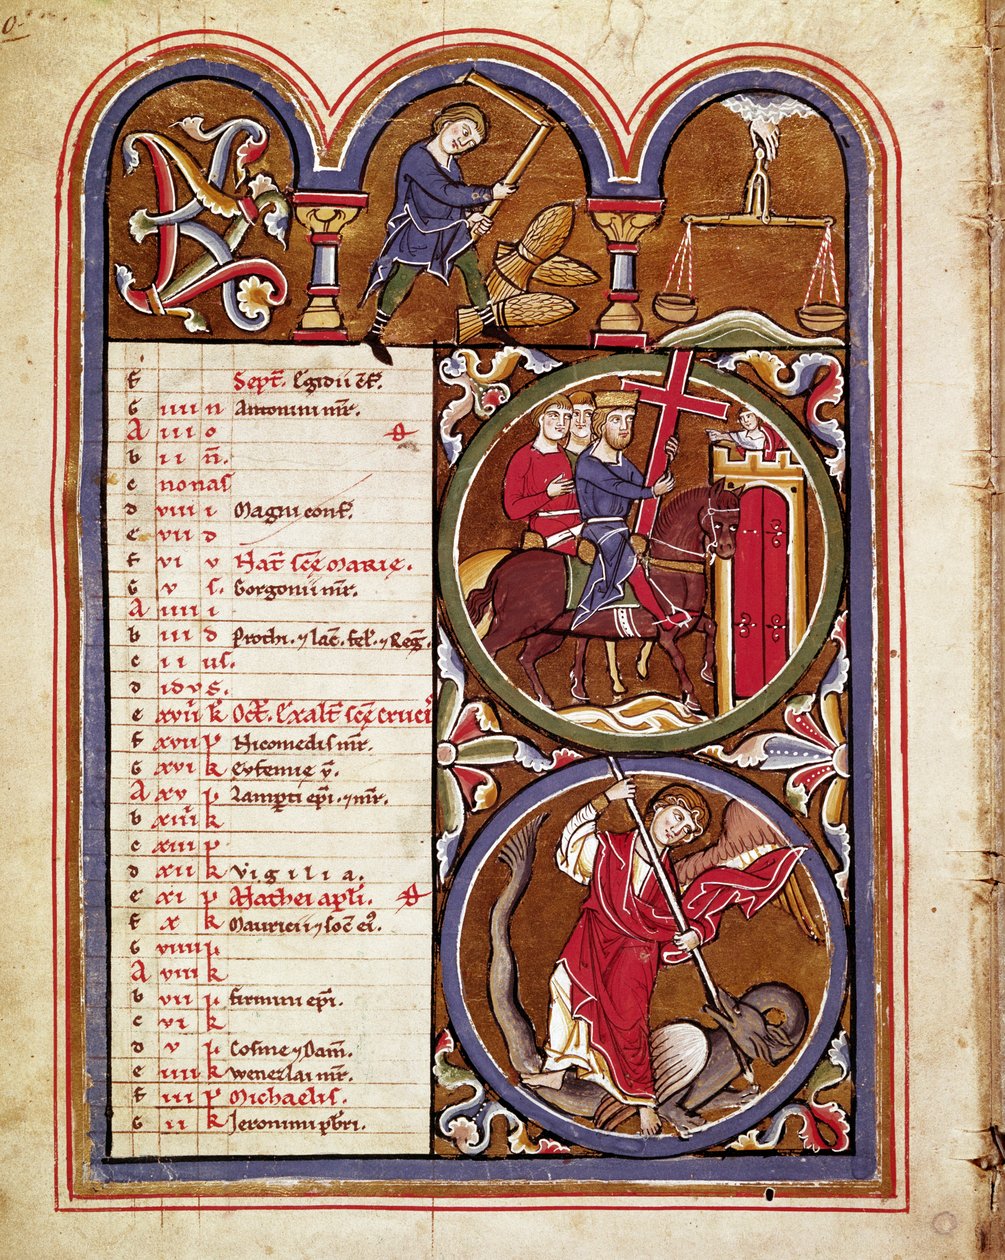 KL
f Sept. Egidii cf.
G iiii n Antonini mr.
A iii o
b ii ñ.
c nonas
d viii i Magni conf.
e vii d
f vi v Nat̄ scē Marie.
G v s. Gorgonii mr.
A iiii i
b iii d Prothi. ⁊ Iac̄. fel. ⁊ Reg.
c ii us.
d idvs.
e xviii k Oct. Exalt̄ scē crucis
f xvii p Nicomedis mr.
G xvi k Eufemie v̄.
A xv p Lamp̄ti ep̄i. ⁊ mr.
b xiiii k
c xiii p
d xii k Vigilia.
e xi p Mathei apłi.
f x k Mauricii ⁊ soc̄ ei.
G viiii p
A viii k
b vii p firmini ep̄i.
c vi k
d v p Cosme ⁊ Dam̄.
e iiii k Wenezlai mr.
f iii p Michaelis.
G ii k Jeronimi pb̄ri.